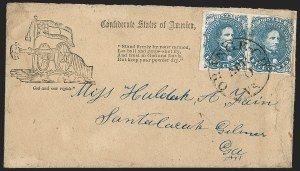 Confederate States of America.
"Stand firmly by your cannon,
Let ball and grape-shot fly,
And trust in God and Davis,
But keep your powder dry."
God and our rights
Miss Huldah A Fain
Santaluca Gilmer
Ga